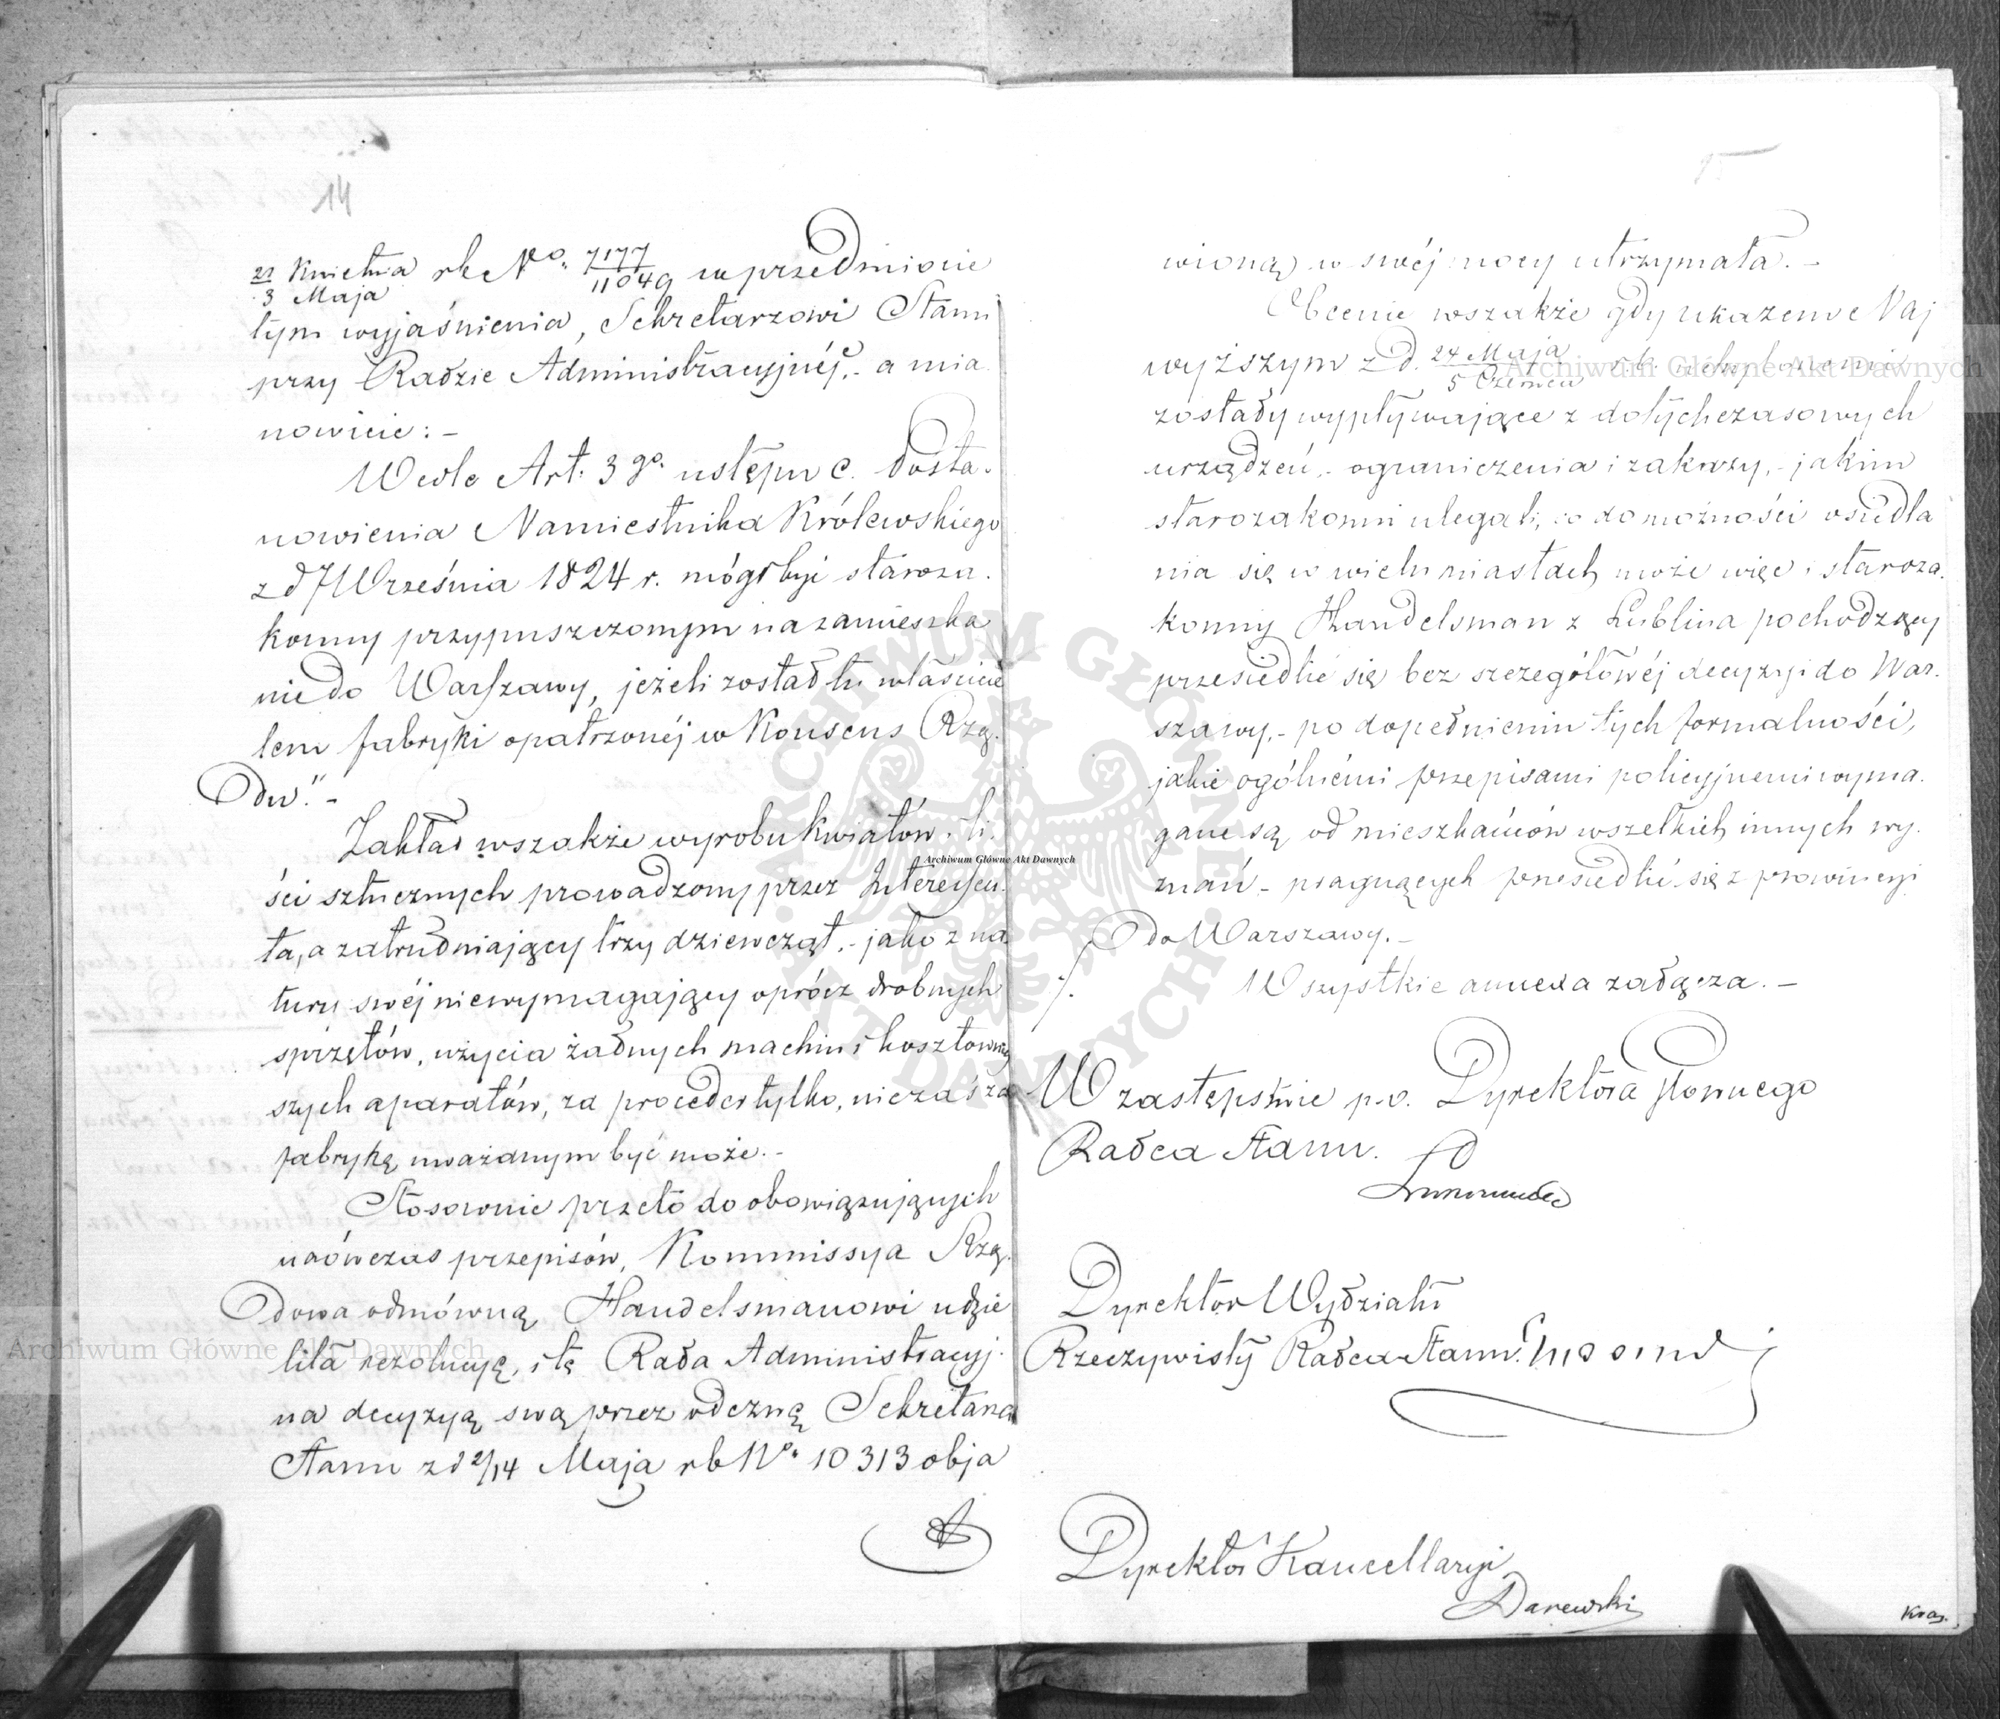 14
21 Kwietnia / 3 Maja rb No. 7177/11049 w przedmiocie
tym wyjaśnienia, Sekretarzowi Stanu
przy Radzie Administracyjnéj, - a mia
nowicie: -
Wedle Art. 3go. ustępu c. Posta-
nowienia Namiestnika Królewskiego
z d 7 Września 1824 r. mógł być staroza-
konny przypuszczonym na zamieszka
nie do Warszawy, jeżeli został tu właścicie
lem fabryki opatrzonéj w Konsens Rzą-
du." -
Zakład wszakże wyrobu kwiatów i li-
ści sztucznych prowadzony przez Interessen-
ta, a zatrudniający trzy dziewcząt, - jako z na
tury swéj niewymagający oprócz drobnych
sprzętów, użycia żadnych machin i kosztowniej
szych aparatów, za proceder tylko, nie zaś za
fabrykę uważanym być może. -
Stosownie przeto do obowiązujących
naówczas przepisów, Kommissya Rzą-
dowa odmówną Handelsmanowi udzie
liła rezolucyą, i tę Rada Administracyj-
na decyzyą swą przez odezwę Sekretarza
Stanu z d 2/14 Maja rb No. 10313 obja
wioną w swéj mocy utrzymała. -
Obecnie wszakże gdy ukazem Naj
wyższym z d. 24 Maja / 5 Czerwca r.b. uchylonemi
zostały wypływające z dotychczasowych
urządzeń, - ograniczenia i zakazy, - jakim
starozakonni ulegali, co do możności osiedla
nia się w wielu miastach, może więc i staroza-
konny Handelsman z Lublina pochodzący
przesiedlić się bez szczegółowéj decyzyi do War-
szawy, - po dopełnieniu tych formalności,
jakie ogólnémi przepisami policyjnemi wyma-
gane są, od mieszkańców wszelkich innych wy-
znań - pragnących przesiedlić się z prowincyi
do Warszawy. -
Wszystkie annexa załącza. -
W zastępstwie p.o. Dyrektora Głównego
Radca Stanu.
Dyrektor Wydziału
Rzeczywisty Radca Stanu.
Dyrektor Kancellaryi
Darewski
Kra.
Archiwum Główne Akt Dawnych
Archiwum Główne Akt Dawnych
Archiwum Główne Akt Dawnych
ARCHIWUM GŁÓWNE · AKT DAWNYCH ·